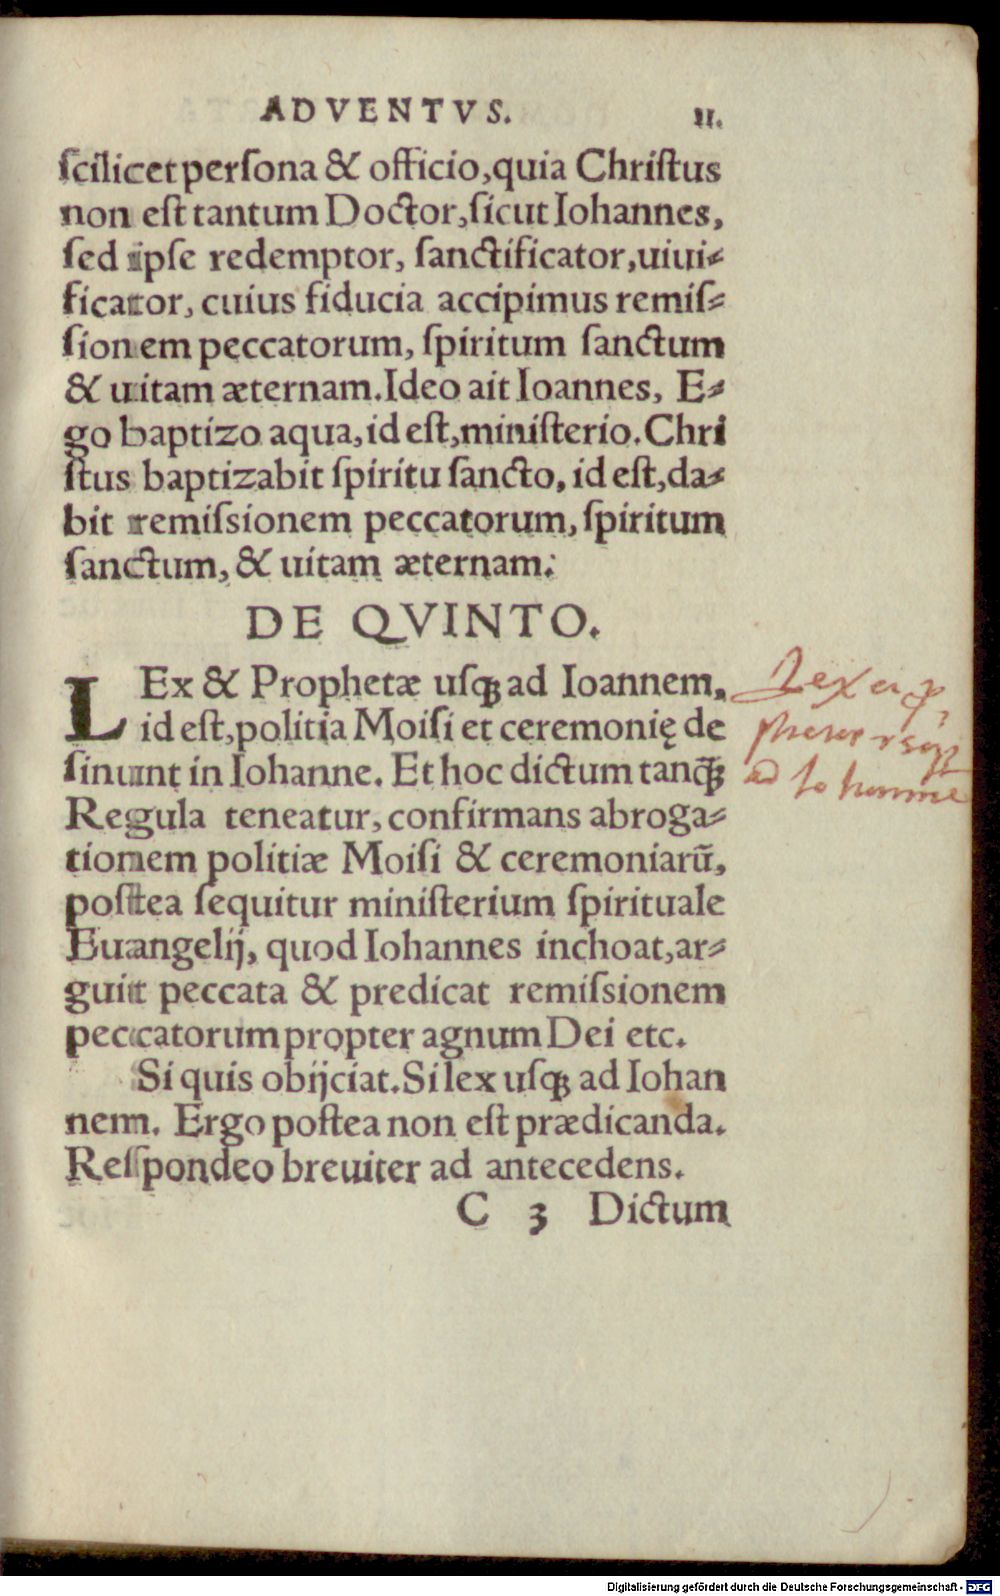 ADVENTVS. 21.
ſcilicet perſona & officio, quia Chriſtus
non eſt tantum Doctor, ſicut Iohannes,
ſed ipſe redemptor, ſanctificator, uiui⸗
ficator, cuius fiducia accipimus remiſ⸗
ſionem peccatorum, ſpiritum ſanctum
& uitam æternam. Ideo ait Ioannes, E⸗
go baptizo aqua, id eſt, miniſterio. Chri
ſtus baptizabit ſpiritu ſancto, id eſt, da⸗
bit remiſsionem peccatorum, ſpiritum
ſanctum, & uitam æternam.
DE QVINTO.
LEx & Prophetæ uſqꝫ ad Ioannem,
id eſt, politia Moiſi et ceremonię de
ſinunt in Iohanne. Et hoc dictum tanq̃ꝫ
Regula teneatur, confirmans abroga⸗
tionem politiæ Moiſi & ceremoniarũ,
poſtea ſequitur miniſterium ſpirituale
Euangelij, quod Iohannes inchoat, ar⸗
guit peccata & predicat remiſsionem
peccatorum propter agnum Dei etc.
Si quis obijciat. Si lex uſqꝫ ad Iohan
nem. Ergo poſtea non eſt prædicanda.
Reſpondeo breuiter ad antecedens.
C 3 Dictum
Lex et
ad
Digitalisierung gefördert durch die Deutsche Forschungsgemeinschaft - DFG